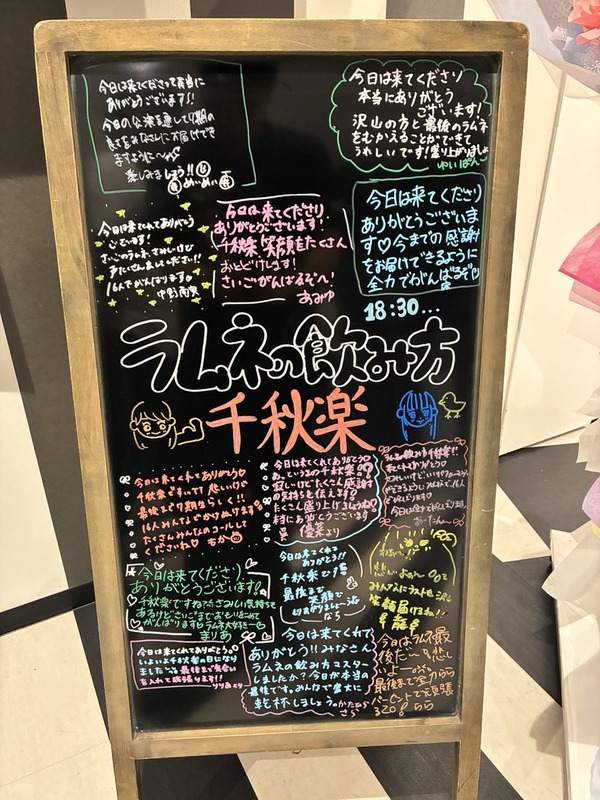 今日は来てくださって本当に
ありがとうございます!!
今日の公演を通して7期の
良さをみなさんにお届けでき
ますように〜
楽しみましょう!!
めいめい
今日は来てくださり
本当にありがとう
ございます!
沢山の方と最後のラムネ
をむかえることができて
うれしいです!盛り上がりましょ
ゆいぱん
今日は来てくれてありがとう
ございます!
さいごのラムネ、さみしいけど
楽しみましょうね!!
16人でがんばります♡
中野
今日は来てくださり
ありがとうございます!
千秋楽 笑顔をたくさん
おとどけします!
さいごがんばるぞへ!
あみゆ
今日は来てくださり
ありがとうございま
す♡今までの感謝
をお届けできるように
全力でがんばるぞ
18:30...
ラムネの飲み方
千秋楽
今日は来てくれてありがとう♡
千秋楽ですねTT 悲しいけど
最後まで7期生らしく!!
16人みんなでかけぬけます
たくさんみんなのコールして
くださいね♡ もか
今日は来てくれてありがとう♡
という名の千秋楽
寂しいけどたくさん感謝
の気持ちを伝えます♡
たくさん盛り上げましょうね♡
本当にありがとうございます
優菜より
ラムネの飲み方千秋楽!!
来てくれてありがとう♡
おーたんー
今日は来てくださり
ありがとうございます♡
千秋楽ですね?さみしい気持ちも
あるけどさいごまでおもいをこめて
がんばります♡ラムネ大好きー
まりあ
今日は来てくれて
ありがとう!!
千秋楽で1番
最後まで
笑顔で
なち
悲しいよぉ〜
みんなにラストも沢山
笑顔届けるね!!
今日は来てくれてありがとう。
いよいよ千秋楽の日になり
ました 最後まで気合い
を入れて頑張ります!!
りりあより
今日は来てくれて
ありがとう!!みなさん
ラムネの飲み方マスター
しましたか?今日が本当の
最後です。みんなで盛大に
乾杯しましょう♡かたひら
さら
今日はラムネ最
後だ〜 悲し
いよー
最後まで全力らら
パーセントで頑張
るぞ! らら